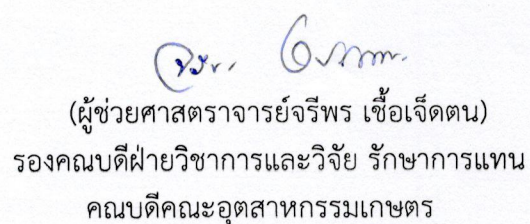 (ผู้ช่วยศาสตราจารย์จรีพร เชื้อเจ็ดตน)
รองคณบดีฝ่ายวิชาการและวิจัย รักษาการแทน
คณบดีคณะอุตสาหกรรมเกษตร